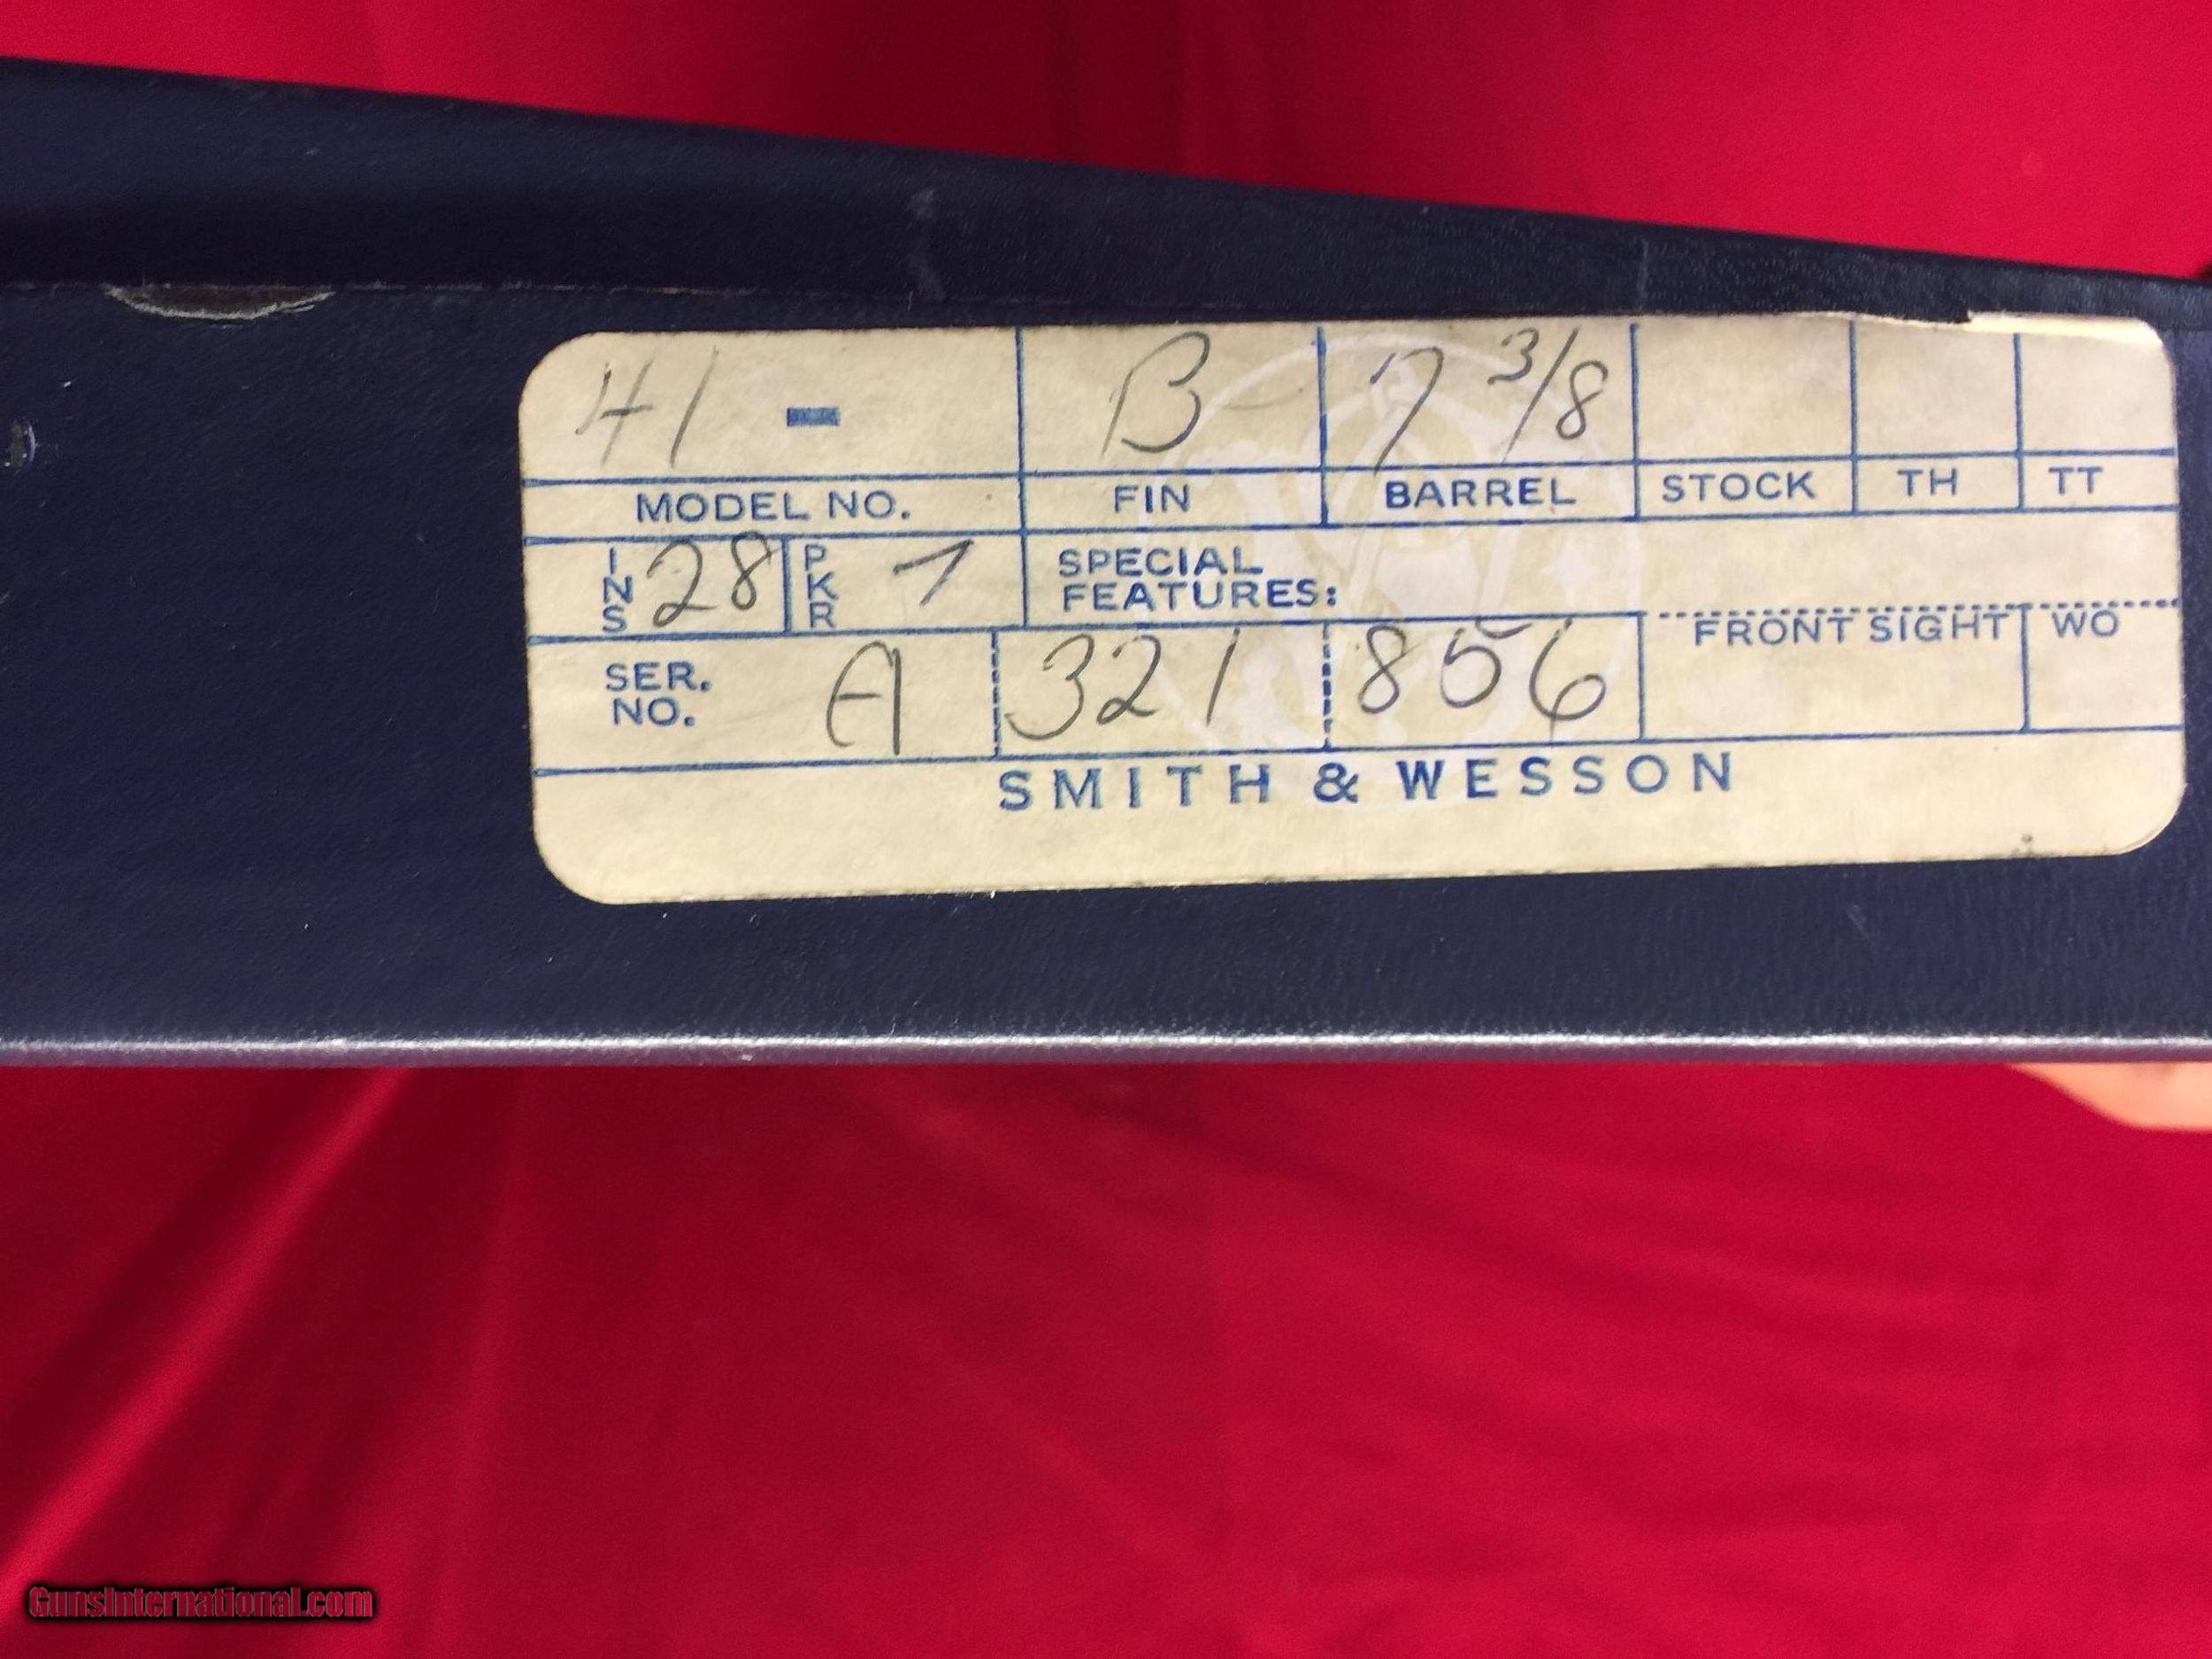 41 - B 7 3/8
MODEL NO. FIN BARREL STOCK TH TT
INS 28 PKR 7 SPECIAL
FEATURES:
FRONT SIGHT WO
SER.
NO. A 321 856
SMITH & WESSON
GunsInternational.com